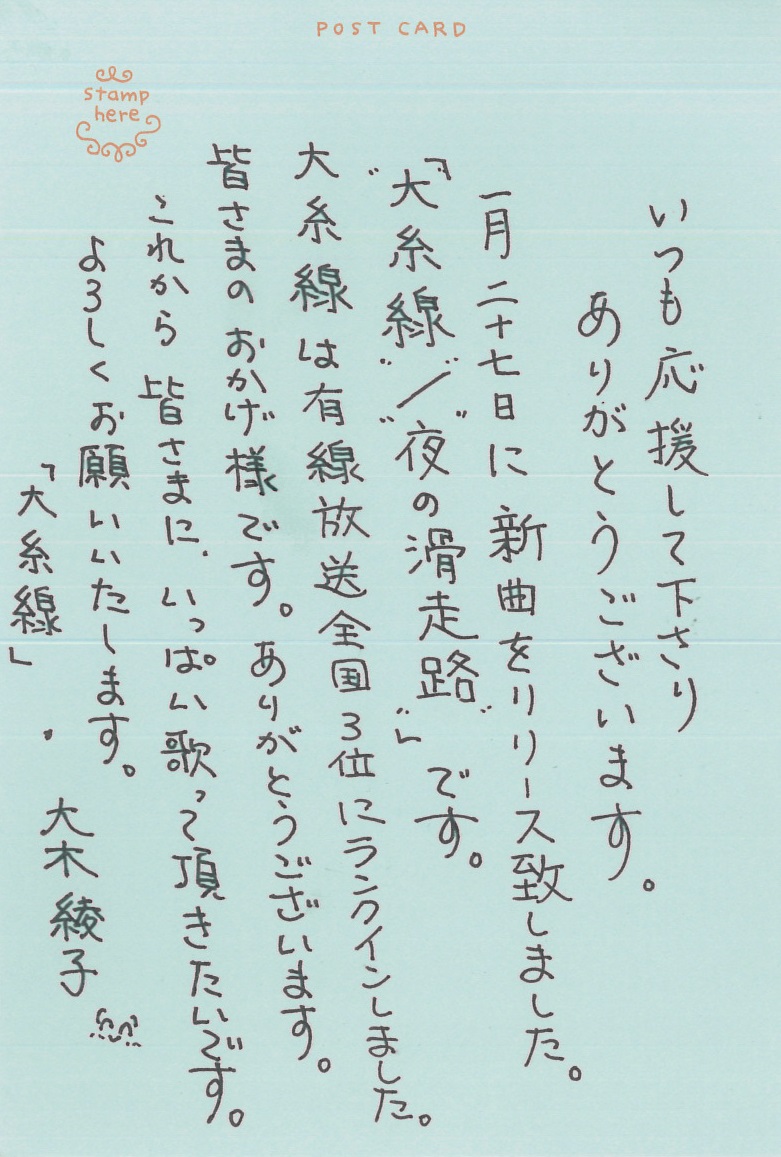 POST CARD
stamp
here
いつも応援して下さり
ありがとうございます。
一月二十七日に新曲をリリース致しました。
「"大糸線"/"夜の滑走路"」です。
大糸線は有線放送全国3位にランクインしました。
皆さまのおかげ様です。ありがとうございます。
これから皆さまに、いっぱい歌って頂きたいです。
よろしくお願いいたします。
「大糸線」・大木綾子